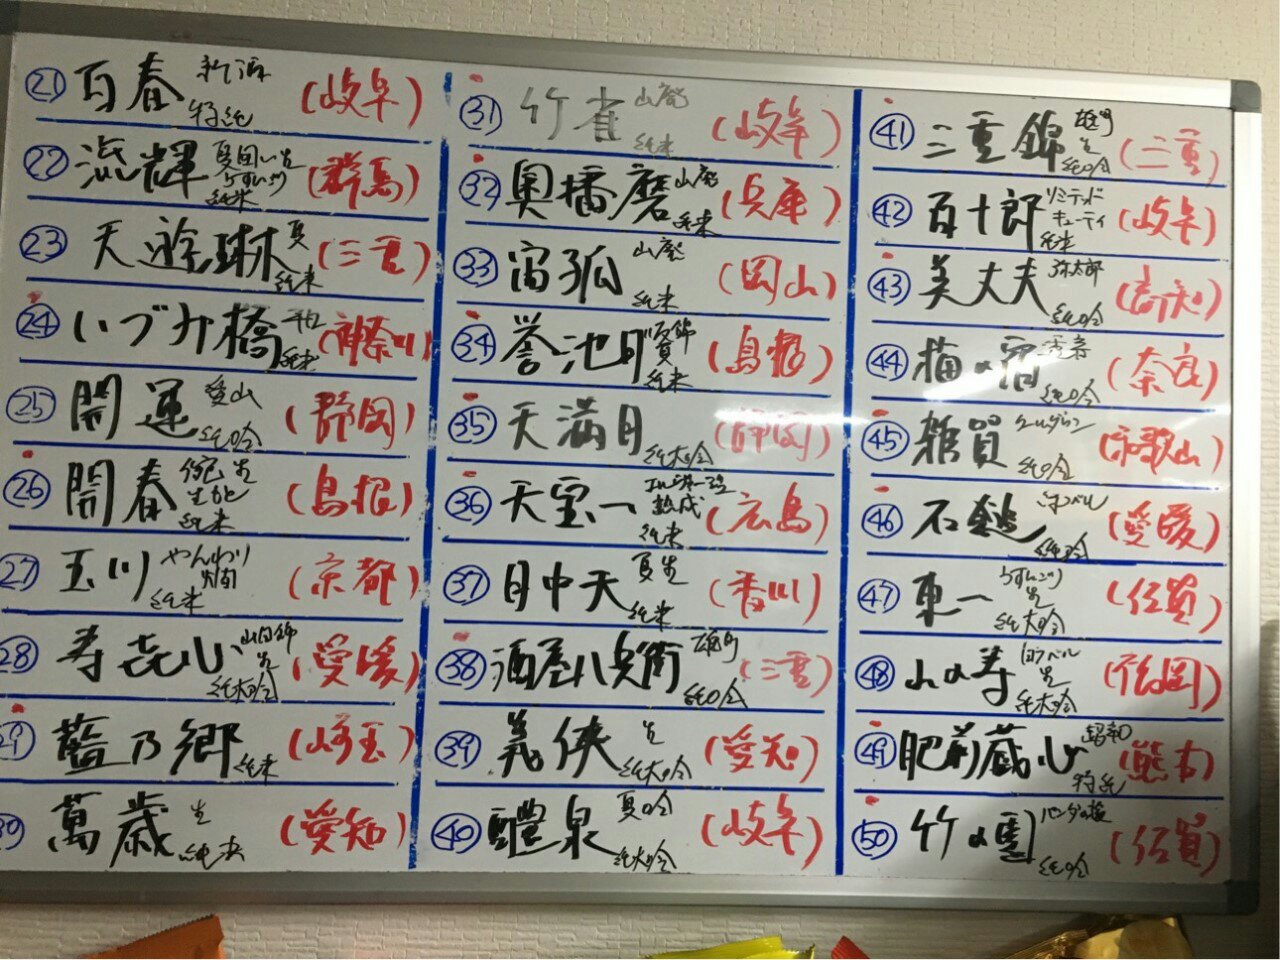 ㉑ 百春 特純 (岐阜)
㉒ 流輝 純米 (群馬)
㉓ 天遊琳 夏 純米 (三重)
㉔ いづみ橋 純米 (神奈川)
㉕ 開運 愛山 純吟 (静岡)
㉖ 開春 純米 (島根)
㉗ 玉川 やんわり 純米 (京都)
㉘ 寿喜心 山田錦 生 純大吟 (愛媛)
㉙ 藍乃郷 純米 (埼玉)
㉚ 萬歳 生 純米 (愛知)
㉛ 竹雀 山廃 純米 (岐阜)
㉜ 奥播磨 山廃 純米 (兵庫)
㉝ 宙狐 山廃 純米 (岡山)
㉞ 誉池月 純米 (島根)
㉟ 天満月 純大吟 (静岡)
㊱ 天宝一 熟成 純米 (広島)
㊲ 日中天 夏生 純米 (香川)
㊳ 酒屋八兵衛 雄町 純吟 (三重)
㊴ 義侠 生 純大吟 (愛知)
㊵ 醴泉 夏吟 純大吟 (岐阜)
㊶ 三重錦 雄町 生 純吟 (三重)
㊷ 百十郎 リミテッド キューティ 純米 (岐阜)
㊸ 美丈夫 弥太郎 純吟 (高知)
㊹ 梅の宿 純吟 (奈良)
㊺ 雑賀 純吟 (和歌山)
㊻ 石鎚 純吟 (愛媛)
㊼ 東一 うすにごり 生 純大吟 (佐賀)
㊽ 山の寿 生 純大吟 (福岡)
㊾ 肥前蔵心 昭和 特純 (熊本)
㊿ 竹の園 パンダの 純吟 (佐賀)